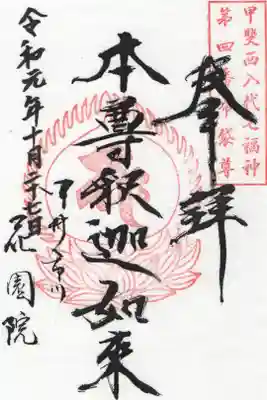 甲斐西八代七福神
第四番布袋尊
奉拝
本尊釈迦如来
甲斐ノ市川
花園院
令和元年十月二十七日